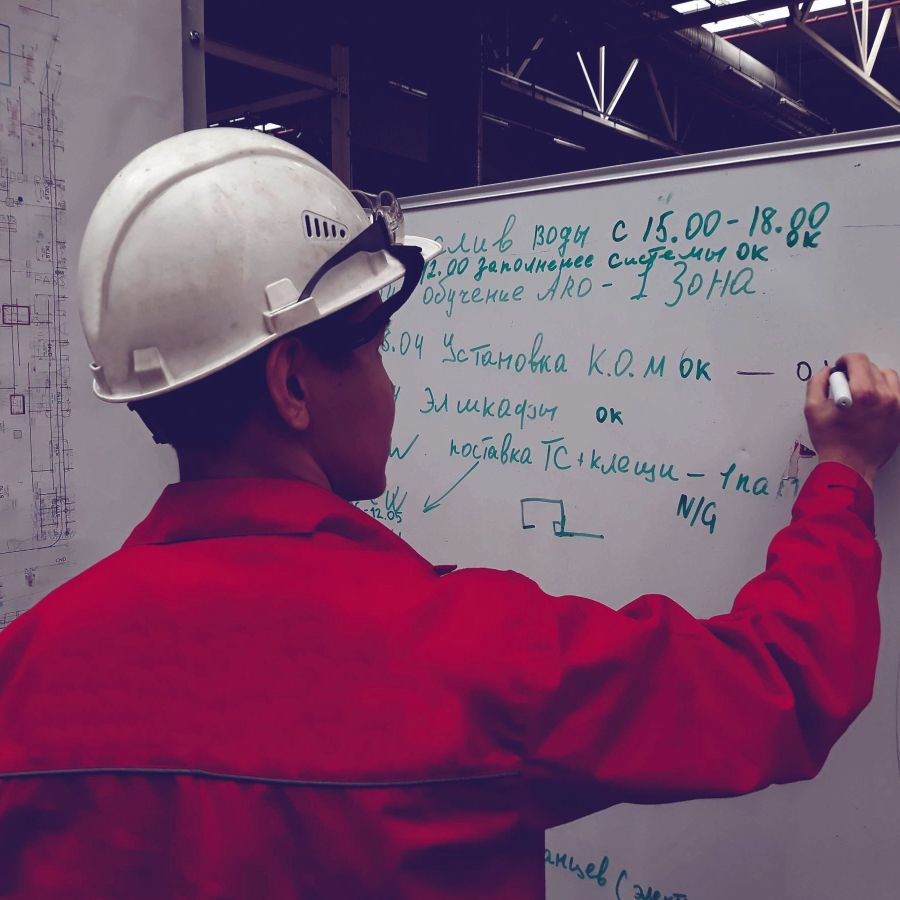 воды с 15.00-18.00 ок
12.00 заполненее системы ок
обучение ARO - 1 Зона
8.04 Установка К.О.М ок —
Элшкафы ок
W поставка ТС+клещи - 1 па
N/G
W
-12.05
анцев (элект